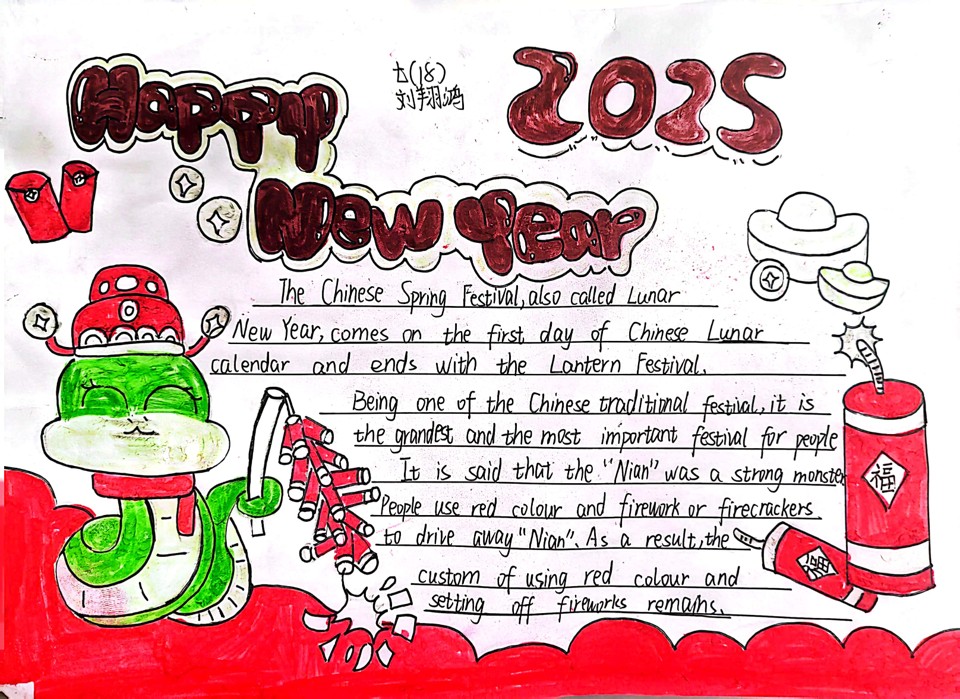 Happy
七(18)
刘翔鸿
2025
New Year
The Chinese Spring Festival, also called Lunar
New Year, comes on the first day of Chinese Lunar
calendar and ends with the Lantern Festival.
Being one of the Chinese traditional festival, it is
the grandest and the most important festival for people
It is said that the "Nian" was a strong monster
People use red colour and firework or firecrackers
to drive away "Nian". As a result, the
custom of using red colour and
setting off fireworks remains.
福
福